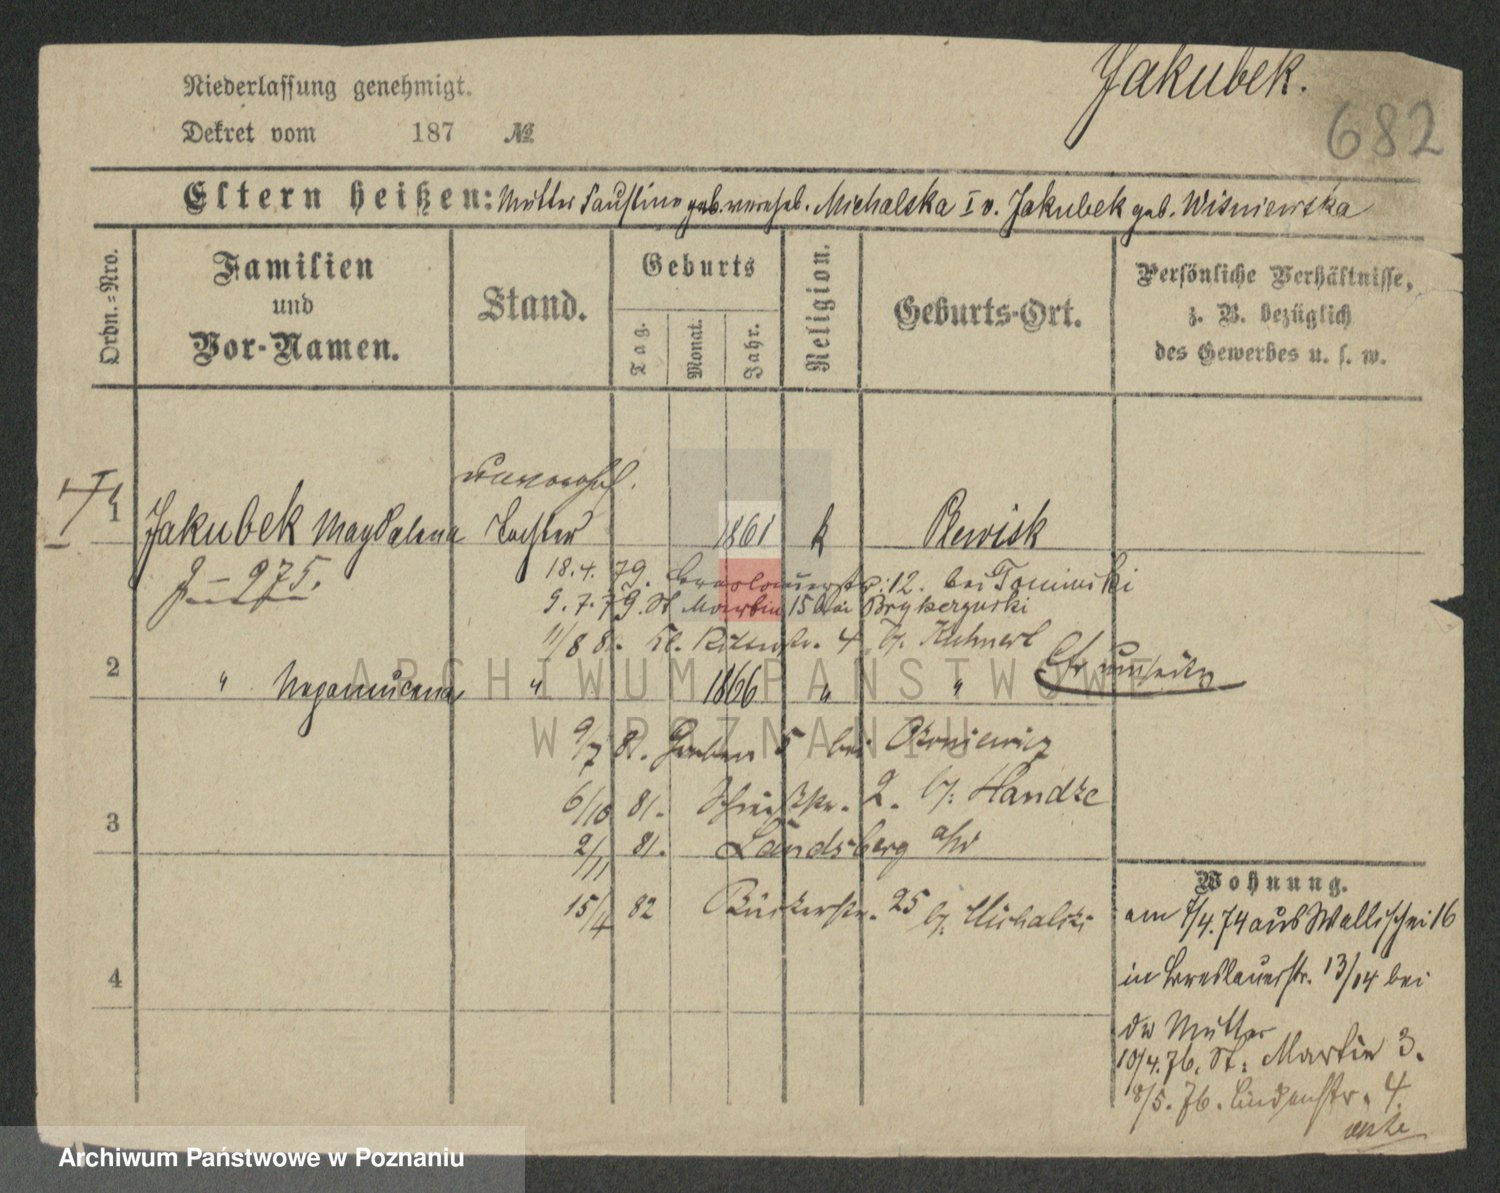 Jakubek.
682
Niederlassung genehmigt.
Dekret vom 187 №
Eltern heißen: Mutter Faustine geb. vereh. Michalska I v. Jakubek geb. Wisniewska
Ordn.=Nro.
Familien
und
Vor-Namen.
Stand.
Geburts
Tag.
Monat.
Jahr.
Religion.
Geburts-Ort.
Persönliche Verhältnisse,
z. B. bezüglich
des Gewerbes u. s. w.
unverehl.
1 Jakubek Magdalena Tochter 1861 k Plewisk
J—275.
18.4.79. Breslauerstr. 12. bei Tominski
9.7.79. St Martin 15 bei
11/8 8. Kl. Ritterstr. 4 b/. Kuhnert
2 " Nepomucena " 1866 " "
Cfr umseitig
9/7 81. Graben 5 bei
6/10 81. Schießstr. 2. b/. Handke
3
2/11 81. Landsberg a/W
15/4 82 Bäckerstr. 25 b/. Michalski
4
Wohnung.
am 7/4.74 aus Wallischei 16
in Breslauerstr. 13/14 bei
der Mutter
10/4.76. St. Martin 3.
8/5.76. Lindenstr. 4.
ARCHIWUM PAŃSTWOWE
W POZNANIU
Archiwum Państwowe w Poznaniu